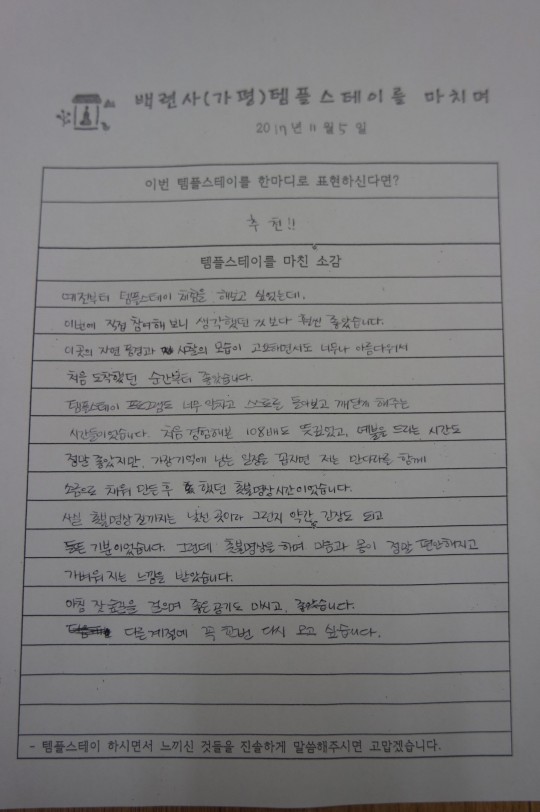 백련사(가평)템플스테이를 마치며
2017년 11월 5일
이번 템플스테이를 한마디로 표현하신다면?
추천!!
템플스테이를 마친 소감
예전부터 템플스테이 체험을 해보고 싶었는데,
이번에 직접 참여해 보니 생각했던 것보다 훨씬 좋았습니다.
이곳의 자연 풍경과 사찰의 모습이 고요하면서도 너무나 아름다워서
처음 도착했던 순간부터 좋았습니다.
템플스테이 프로그램도 너무 알차고 스스로를 돌아보고 깨닫게 해주는
시간들이었습니다. 처음 경험해본 108배도 뜻깊었고, 예불을 드리는 시간도
정말 좋았지만, 가장 기억에 남는 일정을 꼽자면 저는 만다라를 함께
소금으로 채워 만든 후 했던 촛불명상 시간이었습니다.
사실 촛불명상 전까지는 낯선 곳이라 그런지 약간 긴장도 되고
기분이었습니다. 그런데 촛불명상을 하며 마음과 몸이 정말 편안해지고
가벼워지는 느낌을 받았습니다.
아침 잣숲길을 걸으며 좋은 공기도 마시고, 좋았습니다.
다른 계절에 꼭 한번 다시 오고 싶습니다.
- 템플스테이 하시면서 느끼신 것들을 진솔하게 말씀해주시면 고맙겠습니다.